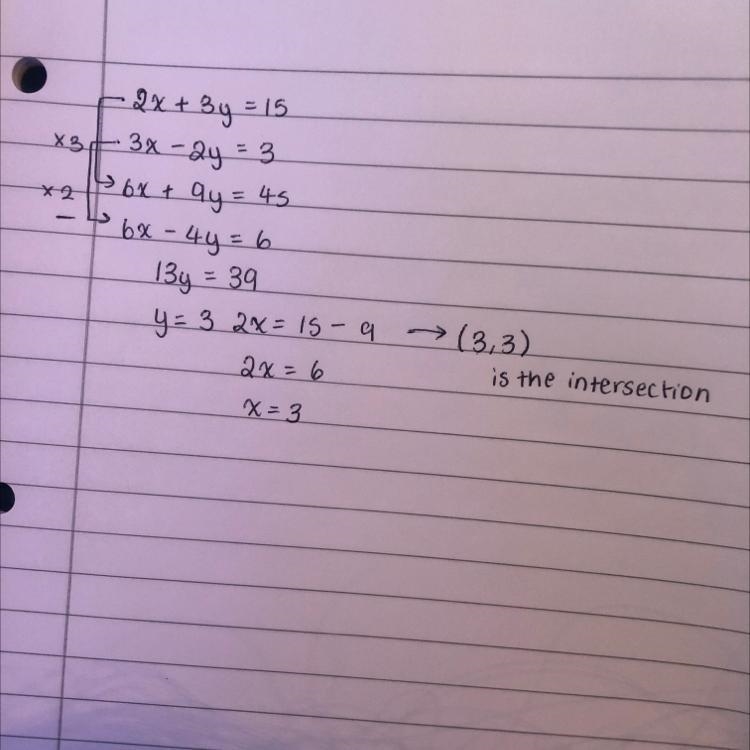 2x + 3y = 15
×3 3x - 2y = 3
×2 6x + 9y = 45
- 6x - 4y = 6
13y = 39
y = 3 2x = 15 - 9 → (3,3)
2x = 6 is the intersection
x = 3